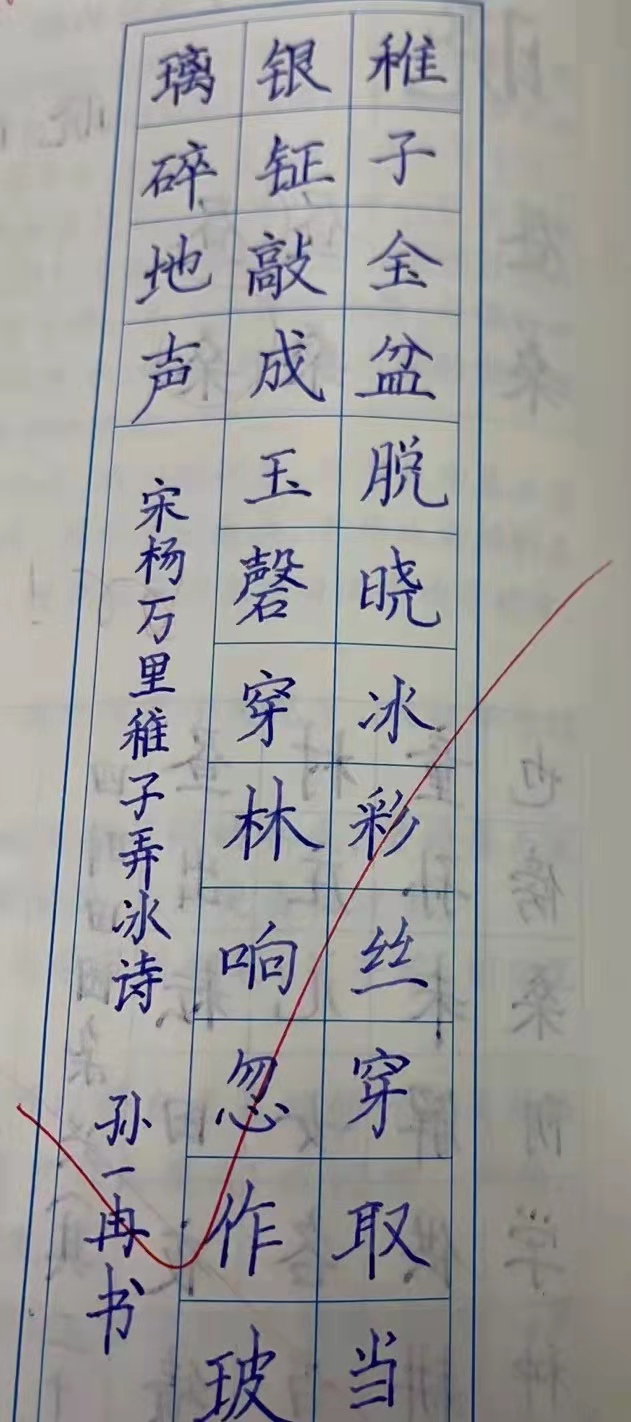 稚子金盆脱晓冰彩丝穿取当
银钲敲成玉磬穿林响忽作玻
璃碎地声
宋杨万里稚子弄冰诗 孙一冉书